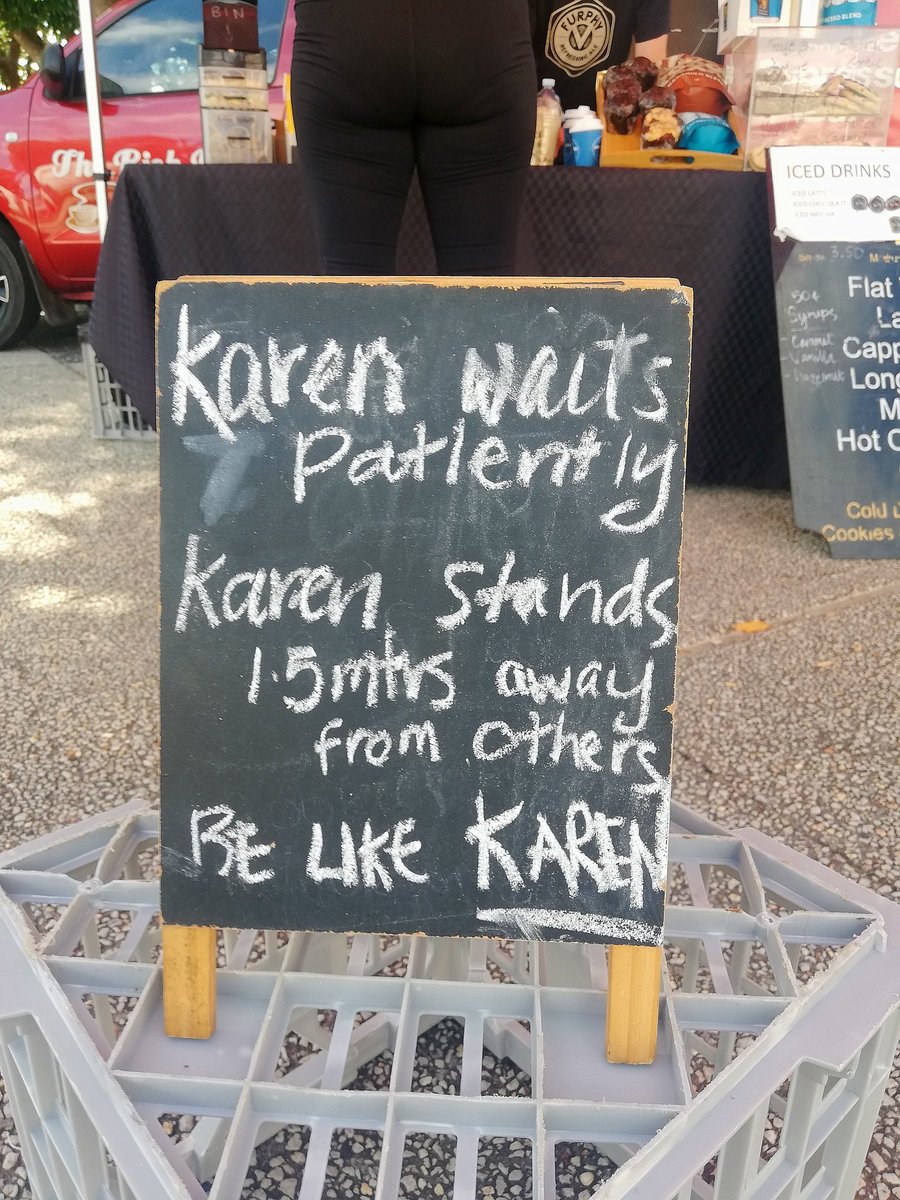 BIN
FURPHY
REFRESHING ALE
The Rich
ICED DRINKS
ICED LATTE
ICED CHOCOLATE
ICED MOCHA
3.50
50¢
Syrups
Caramel
Vanilla
Hazelnut
Flat
La
Capp
Long
M
Hot C
Cold
Cookies
Karen waits
Patiently
Karen Stands
1.5mtrs away
from others
BE LIKE KAREN